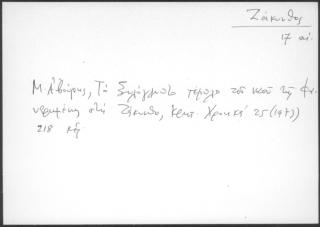 Ζάκυνθος
17 αι.
Μ. Ἀχείμαστου, Τὸ ξυλόγλυπτο τέμπλο τοῦ ναοῦ τῆς Φα-
νερωμένης στὴ Ζάκυνθο, Κρητ. Χρονικά 25 (1973)
218 κἑ.